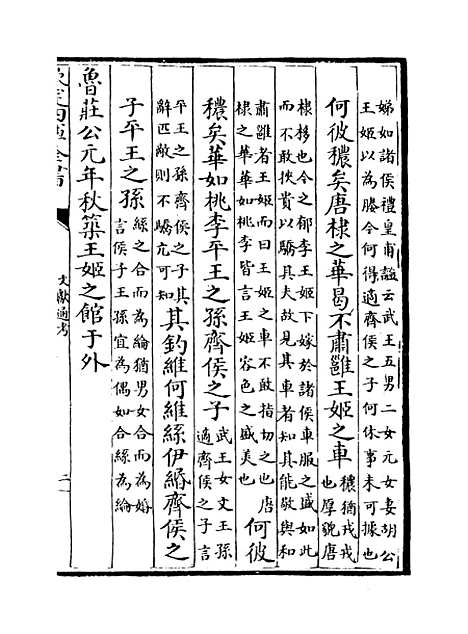 娣如諸侯禮皇甫謐云武王五男二女元女妻胡公
王姬以為媵今何得適齊侯之子何休事未可據也
何彼穠矣唐棣之華曷不肅雝王姬之車穠猶戎戎
也厚貌唐
棣栘也今之郁李王姬下嫁於諸侯車服之盛如此
而不敢挾貴以驕其夫故見其車者知其能敬與和
肅雝者王姬而曰王姬之車不敢指切之也唐
棣之華華如桃李皆言王姬容色之盛美也何彼
穠矣華如桃李平王之孫齊侯之子武王女文王孫
適齊侯之子言
平王之孫齊侯之子其
辭匹敵則不驕亢可知其釣維何維絲伊緡齊侯之
子平王之孫絲之合而為綸猶男女合而為婚
言侯子王孫宜為偶如合絲為綸
魯莊公元年秋築王姬之館于外